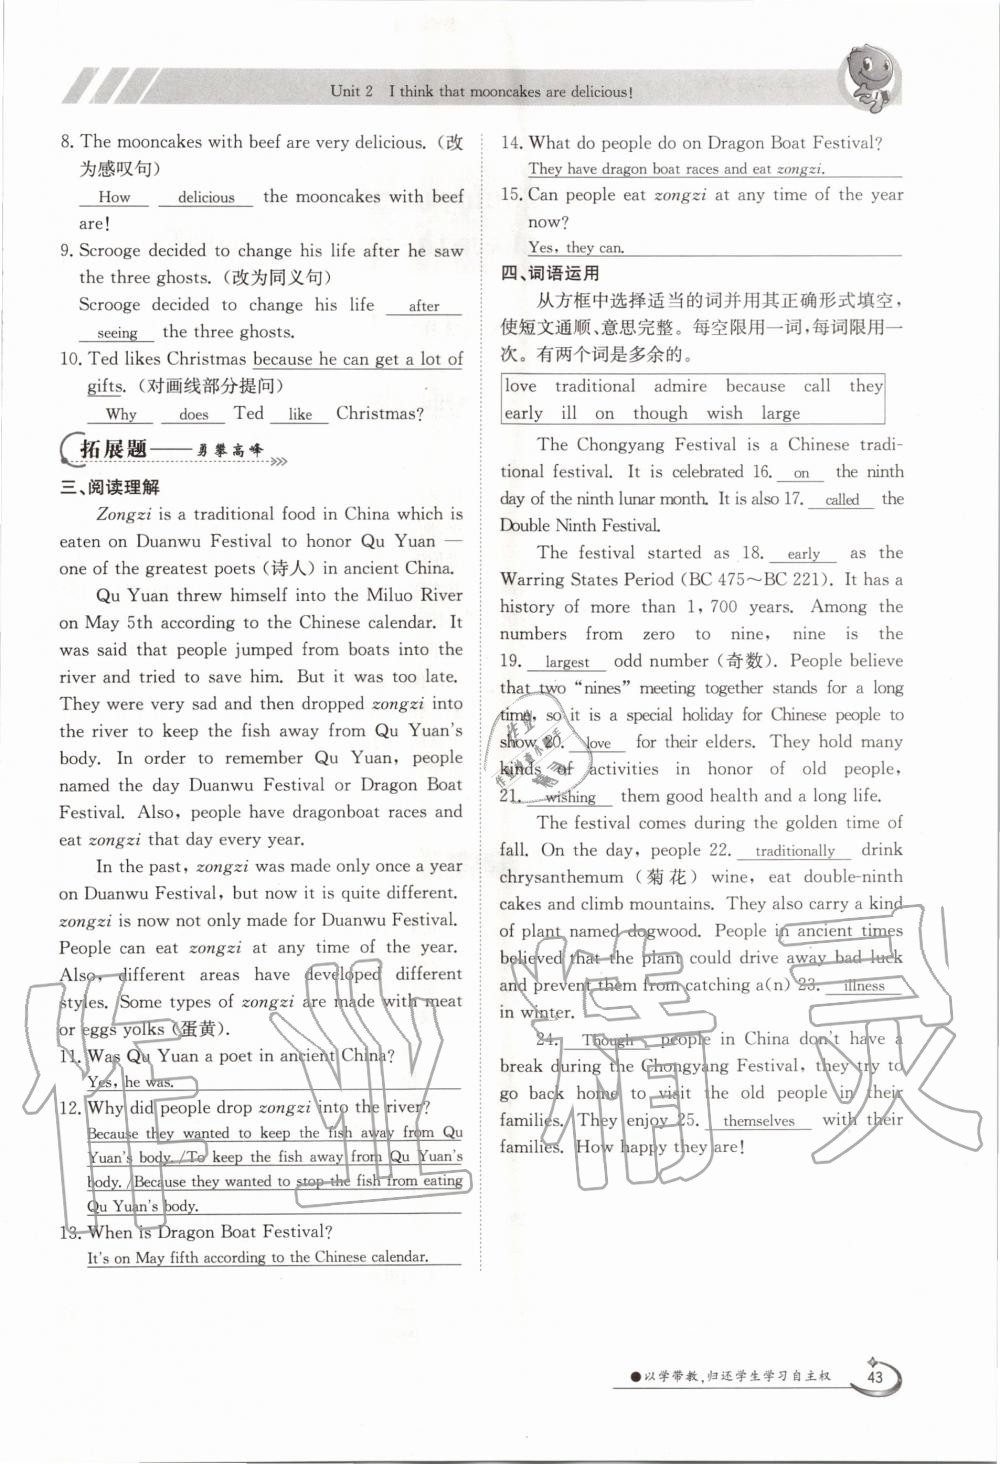 Unit 2 I think that mooncakes are delicious!
8. The mooncakes with beef are very delicious.（改
为感叹句）
How delicious the mooncakes with beef
are!
9. Scrooge decided to change his life after he saw
the three ghosts.（改为同义句）
Scrooge decided to change his life after
seeing the three ghosts.
10. Ted likes Christmas because he can get a lot of
gifts.（对画线部分提问）
Why does Ted like Christmas?
拓展题——勇攀高峰
三、阅读理解
Zongzi is a traditional food in China which is
eaten on Duanwu Festival to honor Qu Yuan —
one of the greatest poets（诗人）in ancient China.
Qu Yuan threw himself into the Miluo River
on May 5th according to the Chinese calendar. It
was said that people jumped from boats into the
river and tried to save him. But it was too late.
They were very sad and then dropped zongzi into
the river to keep the fish away from Qu Yuan's
body. In order to remember Qu Yuan, people
named the day Duanwu Festival or Dragon Boat
Festival. Also, people have dragonboat races and
eat zongzi that day every year.
In the past, zongzi was made only once a year
on Duanwu Festival, but now it is quite different.
zongzi is now not only made for Duanwu Festival.
People can eat zongzi at any time of the year.
Also, different areas have developed different
styles. Some types of zongzi are made with meat
or eggs yolks（蛋黄）.
11. Was Qu Yuan a poet in ancient China?
Yes, he was.
12. Why did people drop zongzi into the river?
Because they wanted to keep the fish away from Qu
Yuan's body. /To keep the fish away from Qu Yuan's
body. /Because they wanted to stop the fish from eating
Qu Yuan's body.
13. When is Dragon Boat Festival?
It's on May fifth according to the Chinese calendar.
14. What do people do on Dragon Boat Festival?
They have dragon boat races and eat zongzi.
15. Can people eat zongzi at any time of the year
now?
Yes, they can.
四、词语运用
从方框中选择适当的词并用其正确形式填空，
使短文通顺、意思完整。每空限用一词，每词限用一
次。有两个词是多余的。
love traditional admire because call they
early ill on though wish large
The Chongyang Festival is a Chinese tradi-
tional festival. It is celebrated 16. on the ninth
day of the ninth lunar month. It is also 17. called the
Double Ninth Festival.
The festival started as 18. early as the
Warring States Period (BC 475～BC 221). It has a
history of more than 1,700 years. Among the
numbers from zero to nine, nine is the
19. largest odd number（奇数）. People believe
that two “nines” meeting together stands for a long
time, so it is a special holiday for Chinese people to
show 20. love for their elders. They hold many
kinds of activities in honor of old people,
21. wishing them good health and a long life.
The festival comes during the golden time of
fall. On the day, people 22. traditionally drink
chrysanthemum（菊花）wine, eat double-ninth
cakes and climb mountains. They also carry a kind
of plant named dogwood. People in ancient times
believed that the plant could drive away bad luck
and prevent them from catching a(n) 23. illness
in winter.
24. Though people in China don't have a
break during the Chongyang Festival, they try to
go back home to visit the old people in their
families. They enjoy 25. themselves with their
families. How happy they are!
作业精灵
●以学带教，归还学生学习自主权 43